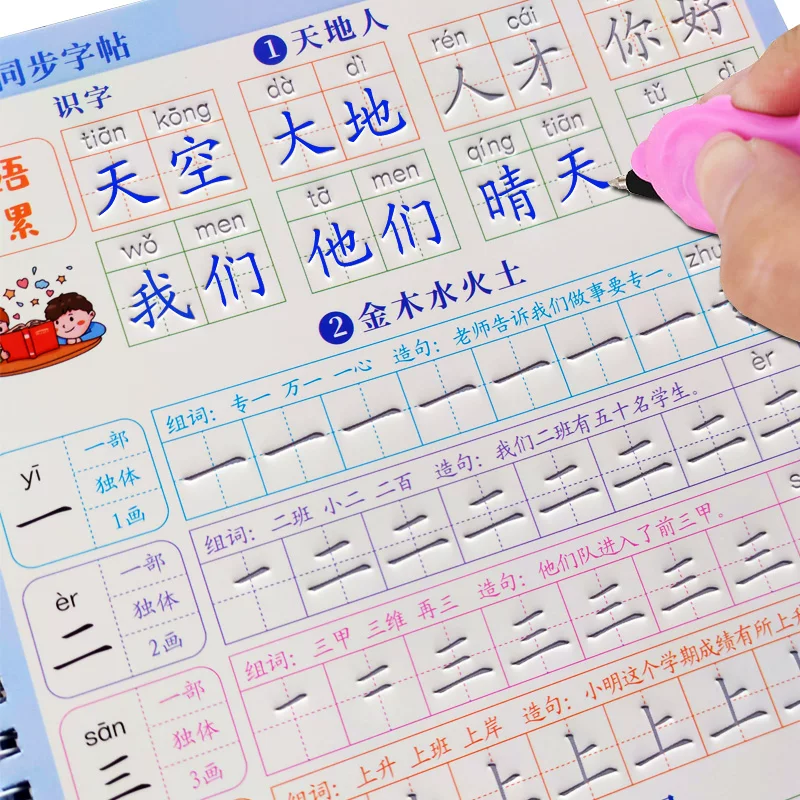 同步字帖
识字
1 天地人
tiān kōng dà dì rén cái
天空 大地 人才 你好
语
累
wǒ men tā men qíng tiān tǔ dì
我们 他们 晴天
2 金木水火土
组词：专一 万一 一心 造句：老师告诉我们做事要专一。
yī
一
一部
独体
1画
一 一 一 一 一 一 一
组词：二班 小二 二百 造句：我们二班有五十名学生。
èr
èr
二
一部
独体
2画
一 二 二 二 二 二 二 二
组词：三甲 三维 再三 造句：他们队进入了前三甲。
sān
三
一部
独体
3画
一 二 三 三 三 三 三
组词：上升 上班 上岸 造句：小明这个学期成绩有所上升
上 上 上 上